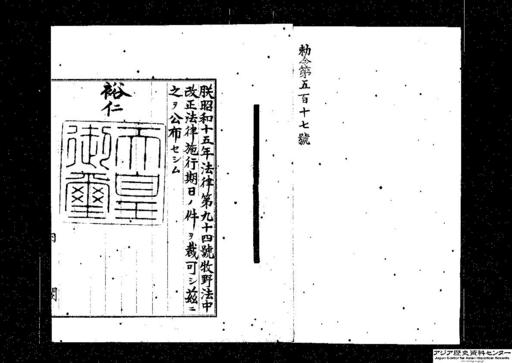 勅令第五百十七號
朕昭和十五年法律第九十四號牧野法中
改正法律施行期日ノ件ヲ裁可シ茲ニ
之ヲ公布セシム
裕仁
天皇御璽
アジア歴史資料センター
Japan Center for Asian Historical Records